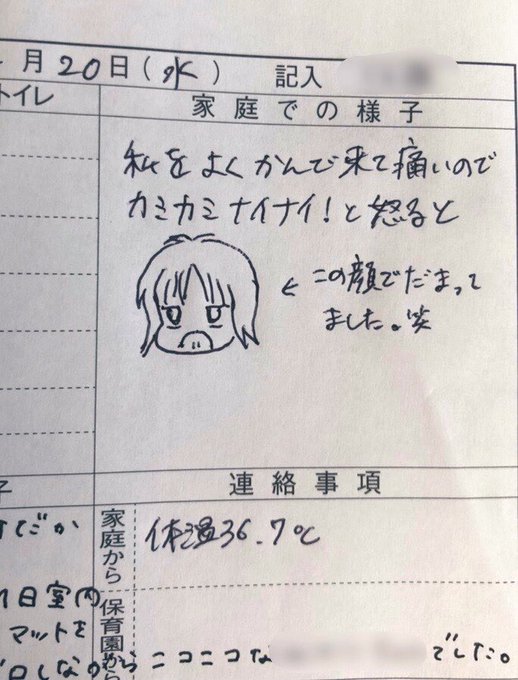 月20日(水) 記入
トイレ 家庭での様子
私をよくかんで来て痛いので
カミカミナイナイ!と怒ると
←この顔でだまって
ました。笑
子 連絡事項
家庭から 体温36.7℃
だか
1日室内
保育園から
マットを
しながら ニコニコな でした。